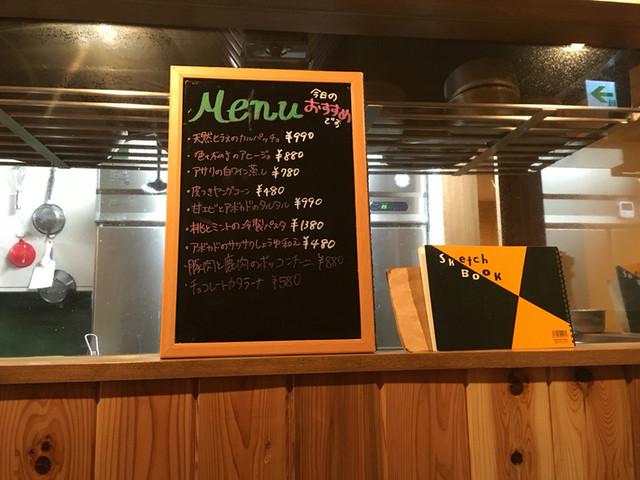 Menu
今日の
おすすめ
です
・天然ヒラメのカルパッチョ ¥990
・色々きのこのアヒージョ ¥880
・アサリの白ワイン蒸し ¥780
・皮つきヤングコーン ¥480
・甘エビとアボカドのタルタル ¥990
・桃とミントの冷製パスタ ¥1380
・アボカドのサッサリしょうゆ和え ¥480
・豚肉と鹿肉のボッコンチーニ ¥880
・チョコレートカタラーナ ¥580
Sketch
BOOK